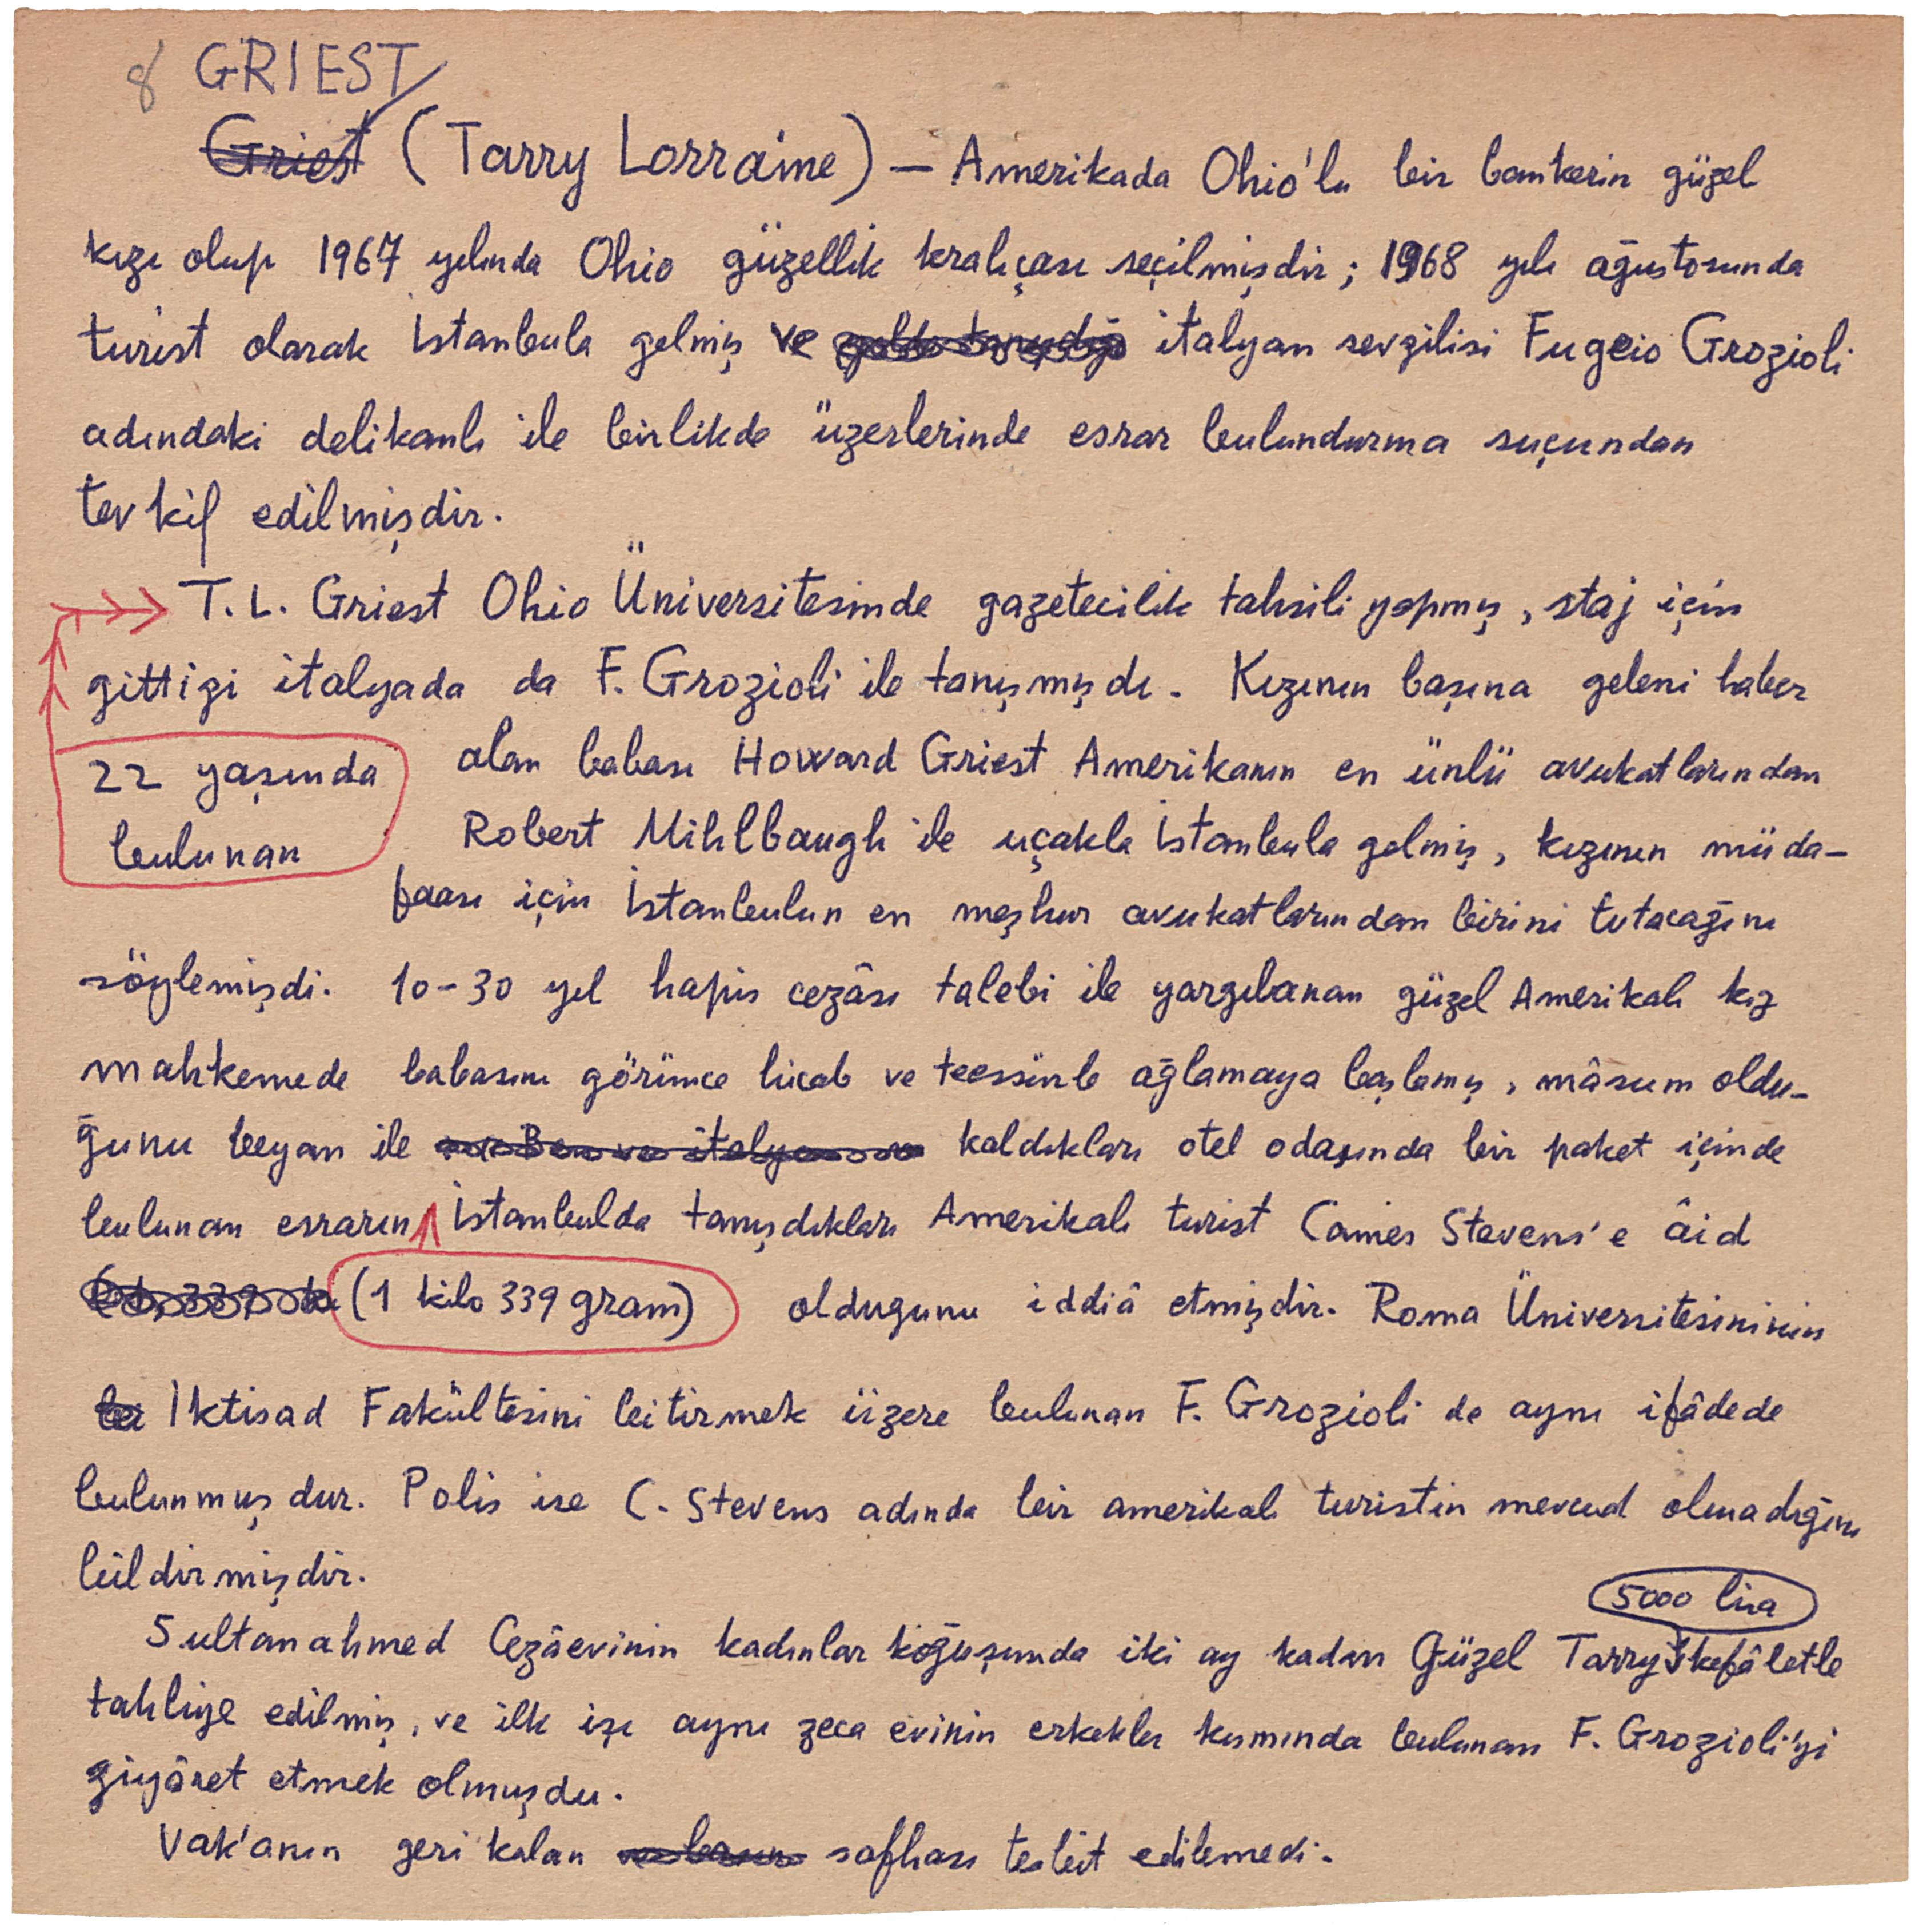 8 GRIEST
Griest (Tarry Lorraine) — Amerikada Ohio'lu bir bankerin güzel
kızı olup 1967 yılında Ohio güzellik kraliçası seçilmişdir; 1968 yılı ağustosunda
turist olarak İstanbula gelmiş ve italyan sevgilisi Fugeio Grozioli
adındaki delikanlı ile birlikde üzerlerinde esrar bulundurma suçundan
tevkif edilmişdir.
T. L. Griest Ohio Üniversitesinde gazetecilik tahsili yapmış, staj için
gittigi italyada da F. Grozioli ile tanışmışdı. Kızının başına geleni haber
22 yaşında alan babası Howard Griest Amerikanın en ünlü avukatlarından
bulunan Robert Mihlbaugh ile uçakla İstanbula gelmiş, kızının müda-
faası için İstanbulun en meşhur avukatlarından birini tutacağını
söylemişdi. 10-30 yıl hapis cezâsı talebi ile yargılanan güzel Amerikalı kız
mahkemede babasını görünce hicab ve teessürle ağlamaya başlamış, mâsum oldu-
ğunu beyan ile kaldıkları otel odasında bir paket içinde
bulunan esrarın İstanbulda tanışdıkları Amerikalı turist Cames Stevens'e âid
(1 kilo 339 gram) oldugunu iddiâ etmişdir. Roma Üniversitesininin
İktisad Fakültesini bitirmek üzere bulunan F. Grozioli de aynı ifâdede
bulunmuşdur. Polis ise C. Stevens adında bir amerikalı turistin mevcud olmadığını
bildirmişdir.
5000 lira
Sultanahmed Cezâevinin kadınlar koğuşunda iki ay kadar Güzel Tarry kefâletle
tahliye edilmiş, ve ilk işi aynı zeca evinin erkekler kısmında bulunan F. Grozioli'yi
ziyâret etmek olmuşdu.
Vak'anın geri kalan safhası tesbit edilemedi.